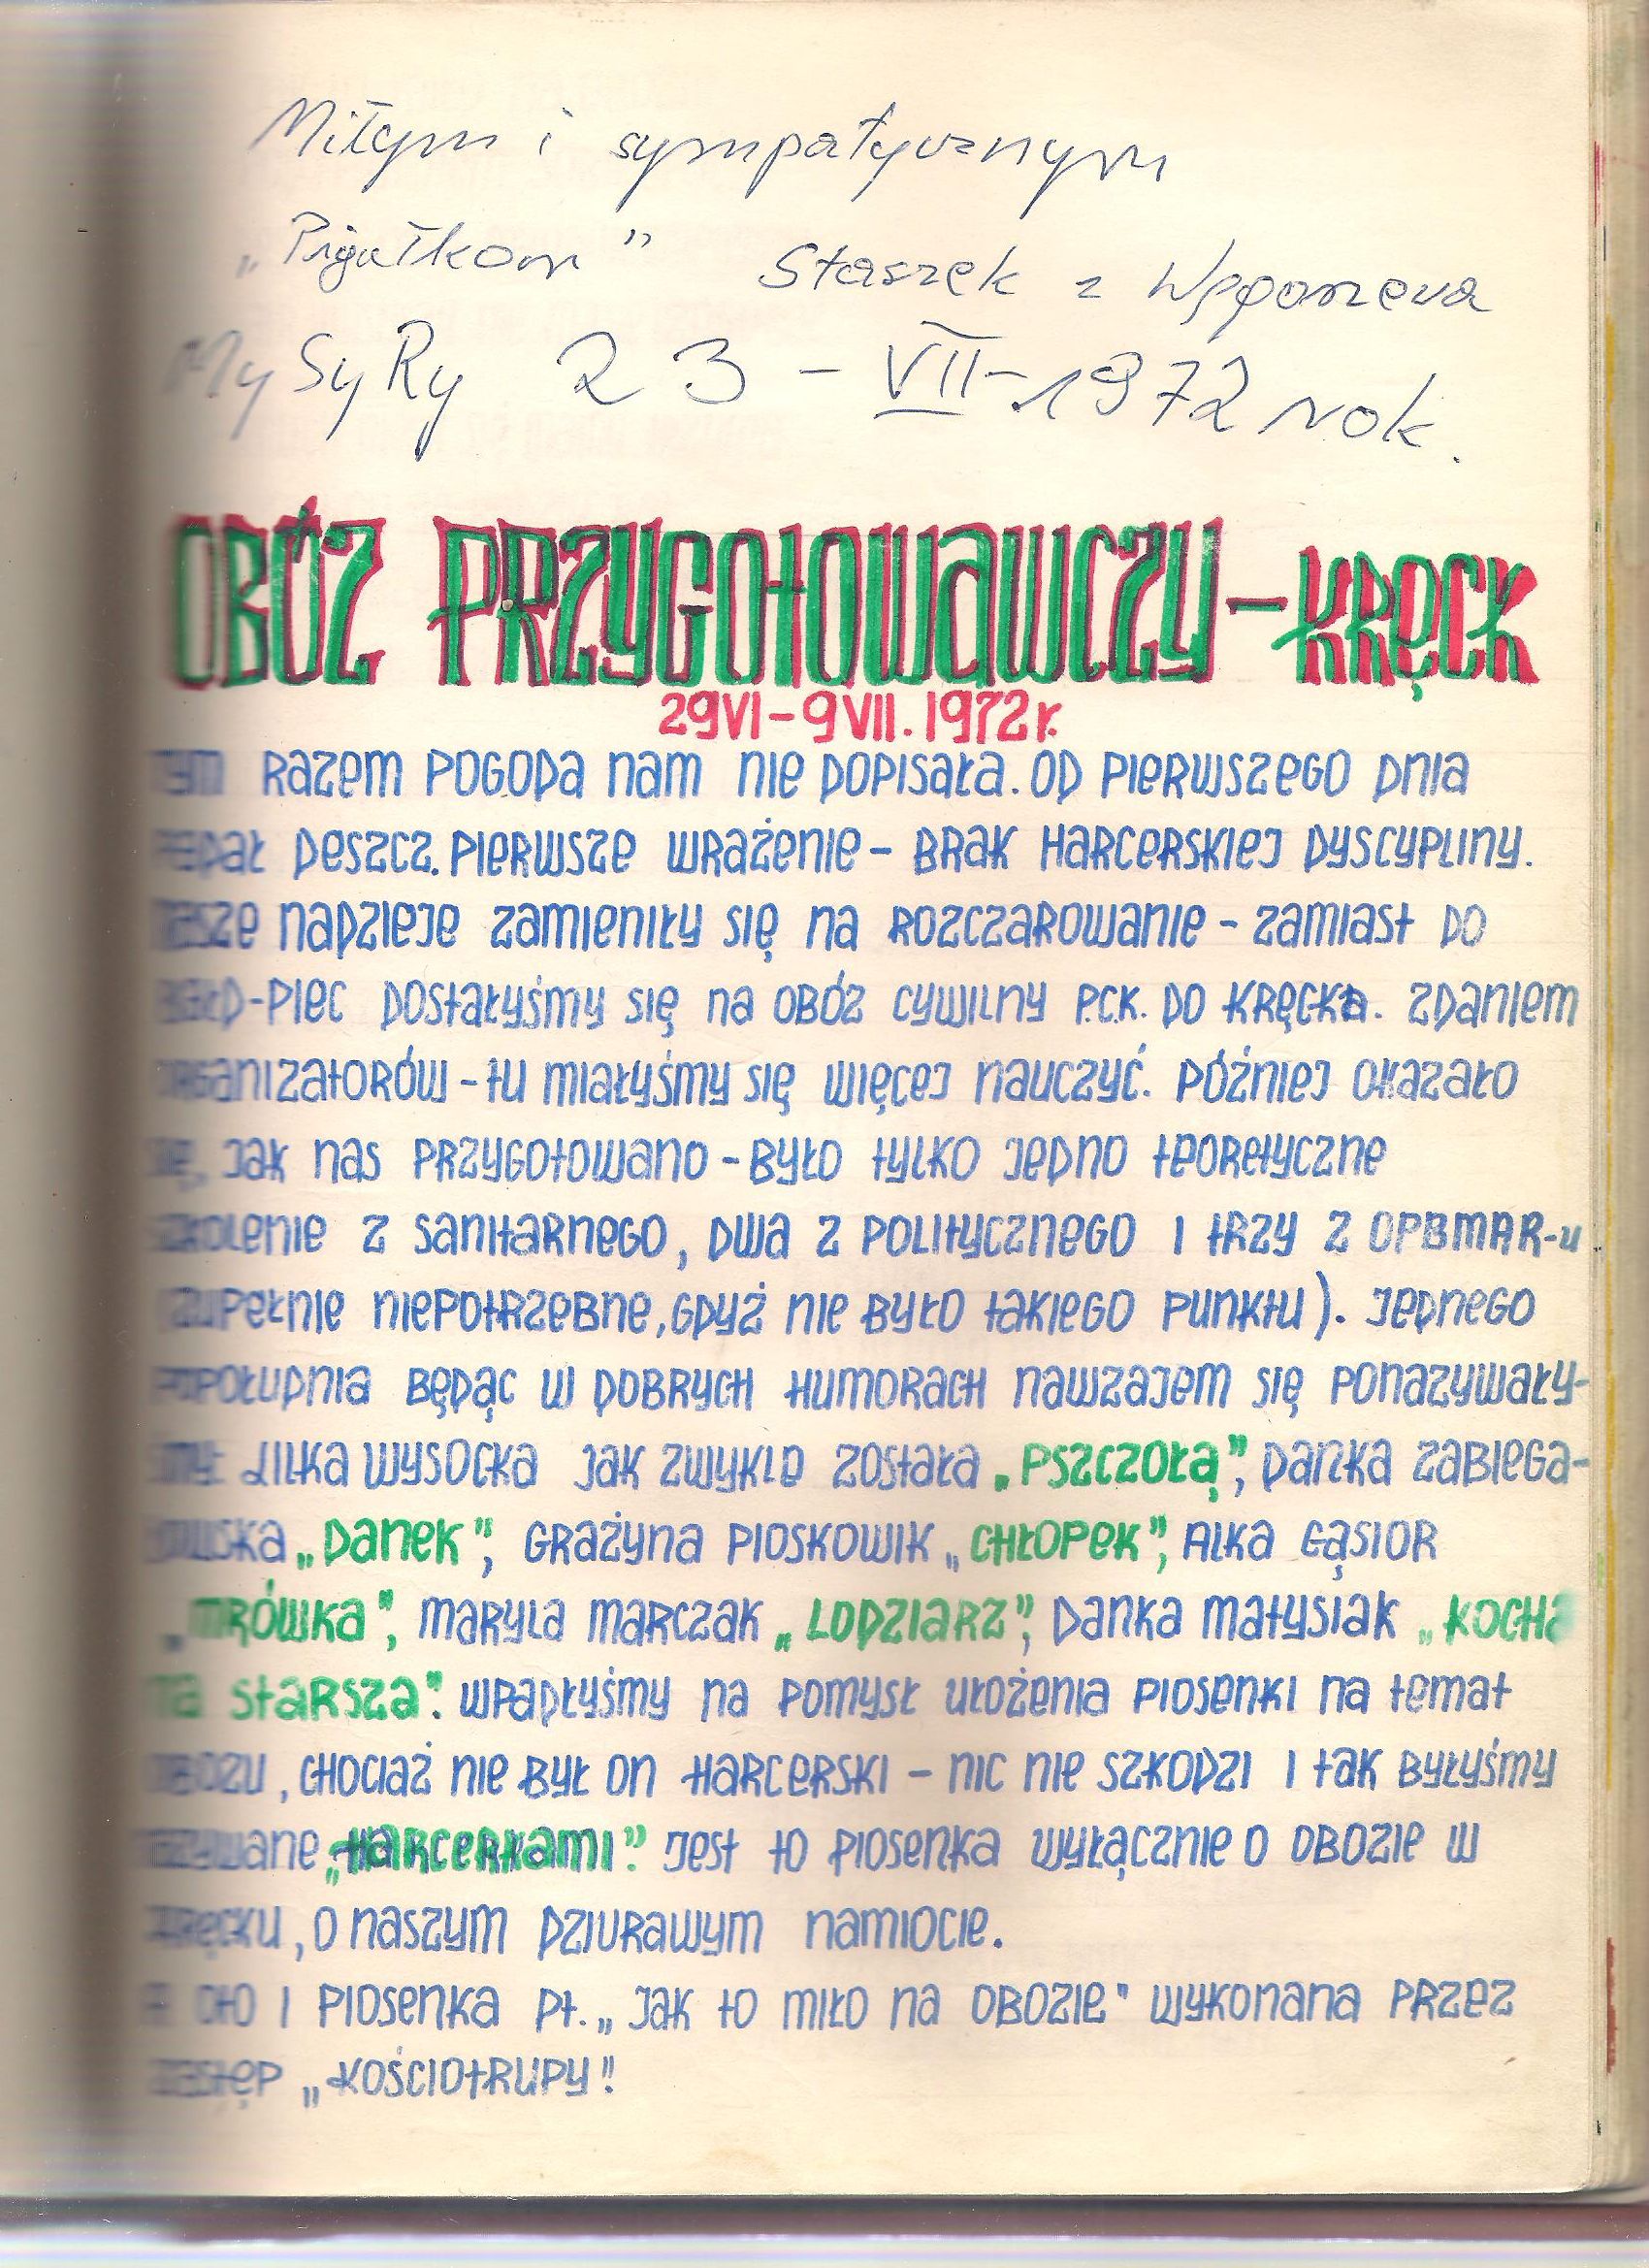 Miłym i sympatycznym
„Pigułkom" Staszek z Węgorzewa
MySyRy 23-VII-1972 rok.
OBÓZ PRZYGOTOWAWCZY - KRĘCK
29 VI - 9 VII. 1972 r.
TYM RAZEM POGODA NAM NIE DOPISAŁA. OD PIERWSZEGO DNIA
PADAŁ DESZCZ. PIERWSZE WRAŻENIE - BRAK HARCERSKIEJ DYSCYPLINY.
NASZE NADZIEJE ZAMIENIŁY SIĘ NA ROZCZAROWANIE - ZAMIAST DO
-PIEC DOSTAŁYŚMY SIĘ NA OBÓZ CYWILNY P.C.K. DO KRĘCKA. ZDANIEM
ORGANIZATORÓW - TU MIAŁYŚMY SIĘ WIĘCEJ NAUCZYĆ. PÓŹNIEJ OKAZAŁO
SIĘ, JAK NAS PRZYGOTOWANO - BYŁO TYLKO JEDNO TEORETYCZNE
SZKOLENIE Z SANITARNEGO, DWA Z POLITYCZNEGO I TRZY Z OPBMAR-u
ZUPEŁNIE NIEPOTRZEBNE, GDYŻ NIE BYŁO TAKIEGO PUNKTU). JEDNEGO
POPOŁUDNIA BĘDĄC W DOBRYCH HUMORACH NAWZAJEM SIĘ PONAZYWAŁY-
ŚMY: LILKA WYSOCKA JAK ZWYKLE ZOSTAŁA „PSZCZOŁĄ", DANKA ZABIEGA-
ŁOWSKA „DANEK", GRAŻYNA PIOSKOWIK „CHŁOPEK", ALKA GĄSIOR
„MRÓWKA", MARYLA MARCZAK „LODZIARZ", DANKA MATYSIAK „KOCHA
NA STARSZA". WPADŁYŚMY NA POMYSŁ UŁOŻENIA PIOSENKI NA TEMAT
OBOZU, CHOCIAŻ NIE BYŁ ON HARCERSKI - NIC NIE SZKODZI I TAK BYŁYŚMY
NAZYWANE „HARCERKAMI". JEST TO PIOSENKA WYŁĄCZNIE O OBOZIE W
KRĘCKU, O NASZYM DZIURAWYM NAMIOCIE.
A OTO I PIOSENKA PT. „JAK TO MIŁO NA OBOZIE" WYKONANA PRZEZ
ZASTĘP „KOŚCIOTRUPY"!